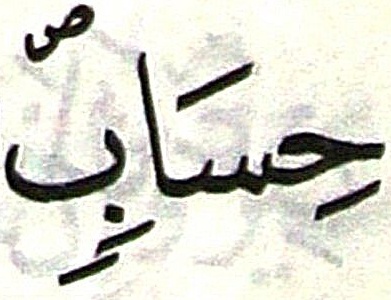 حِسَابٍ ص